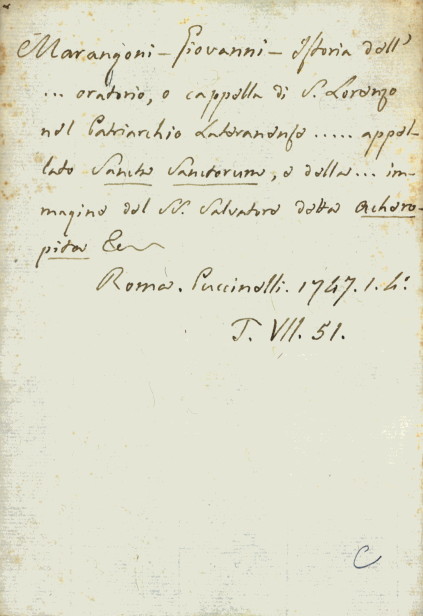 Marangoni - Giovanni - Istoria dell'
... oratorio, o cappella di S. Lorenzo
nel Patriarchio Lateranense ..... appel-
lato Sancta Sanctorum, e della ... im-
magine del SS. Salvatore detta Achero-
pita &c
Roma. Puccinelli. 1747. 1. 4.º
T. VII. 51.
C